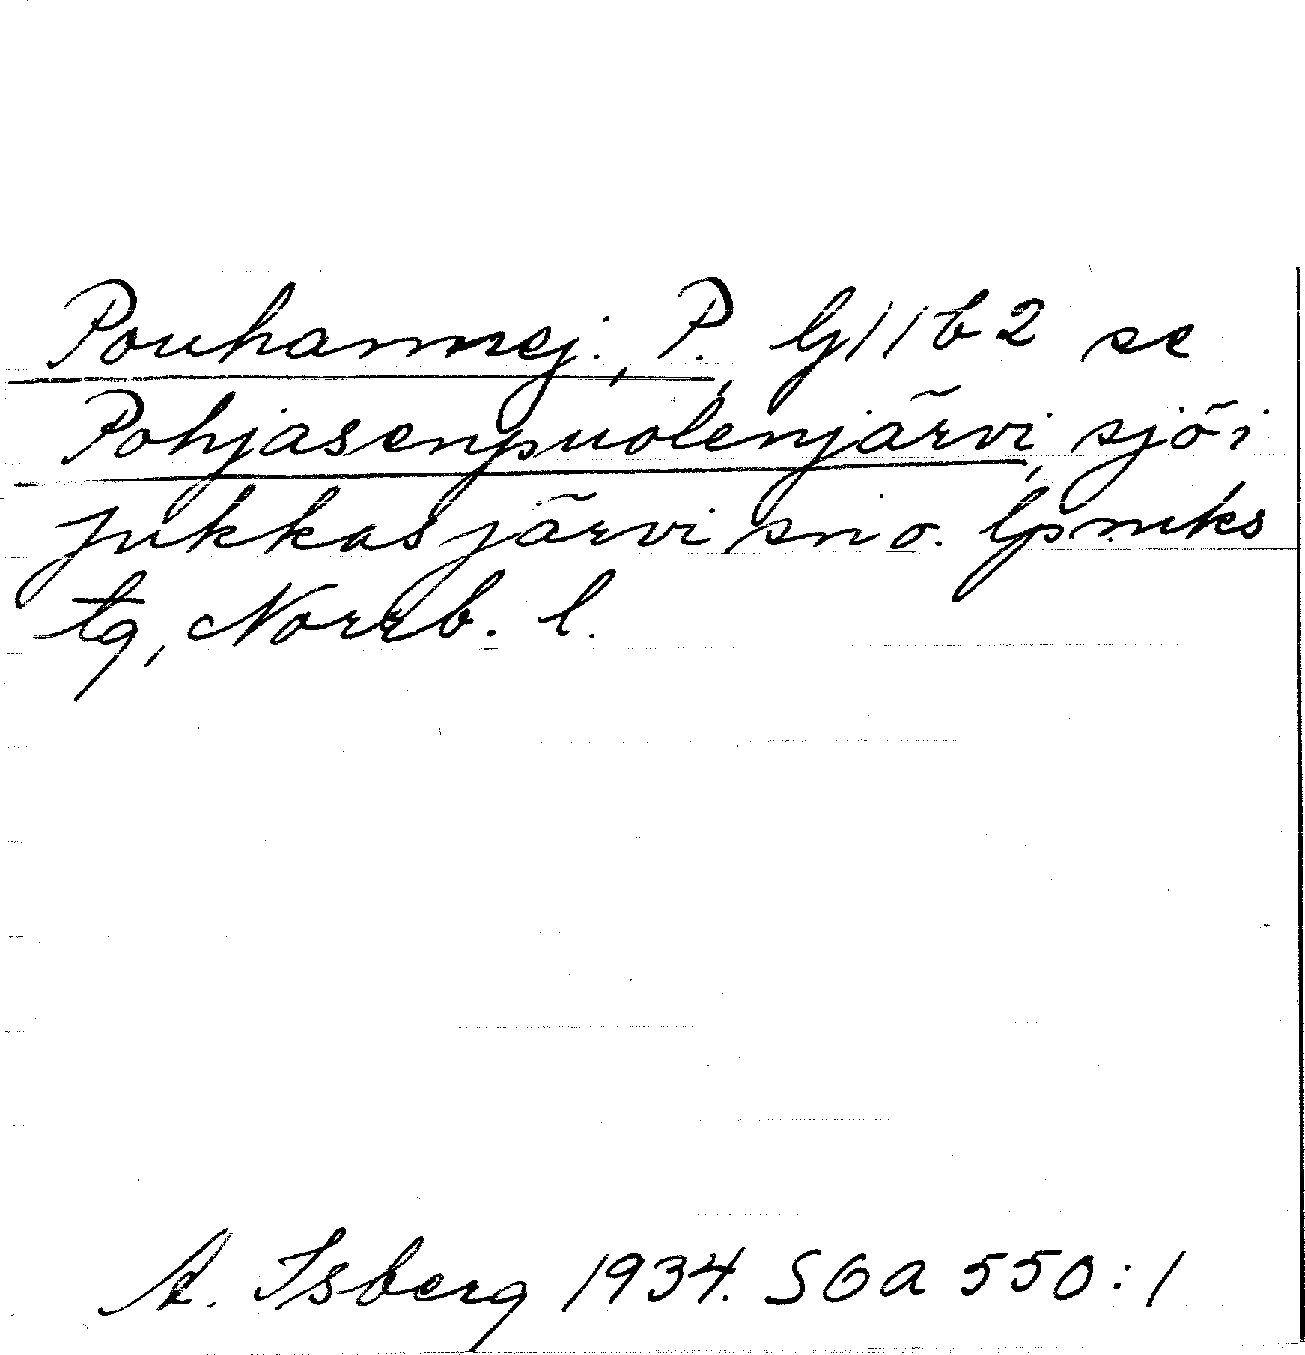 Pouhannej., P. lj 11 b 2 se
Pohjasenpuolenjärvi, sjö i
Jukkasjärvi sn o. lpmks
tg, Norrb. l.
A. Isberg 1934. SOA 550:1